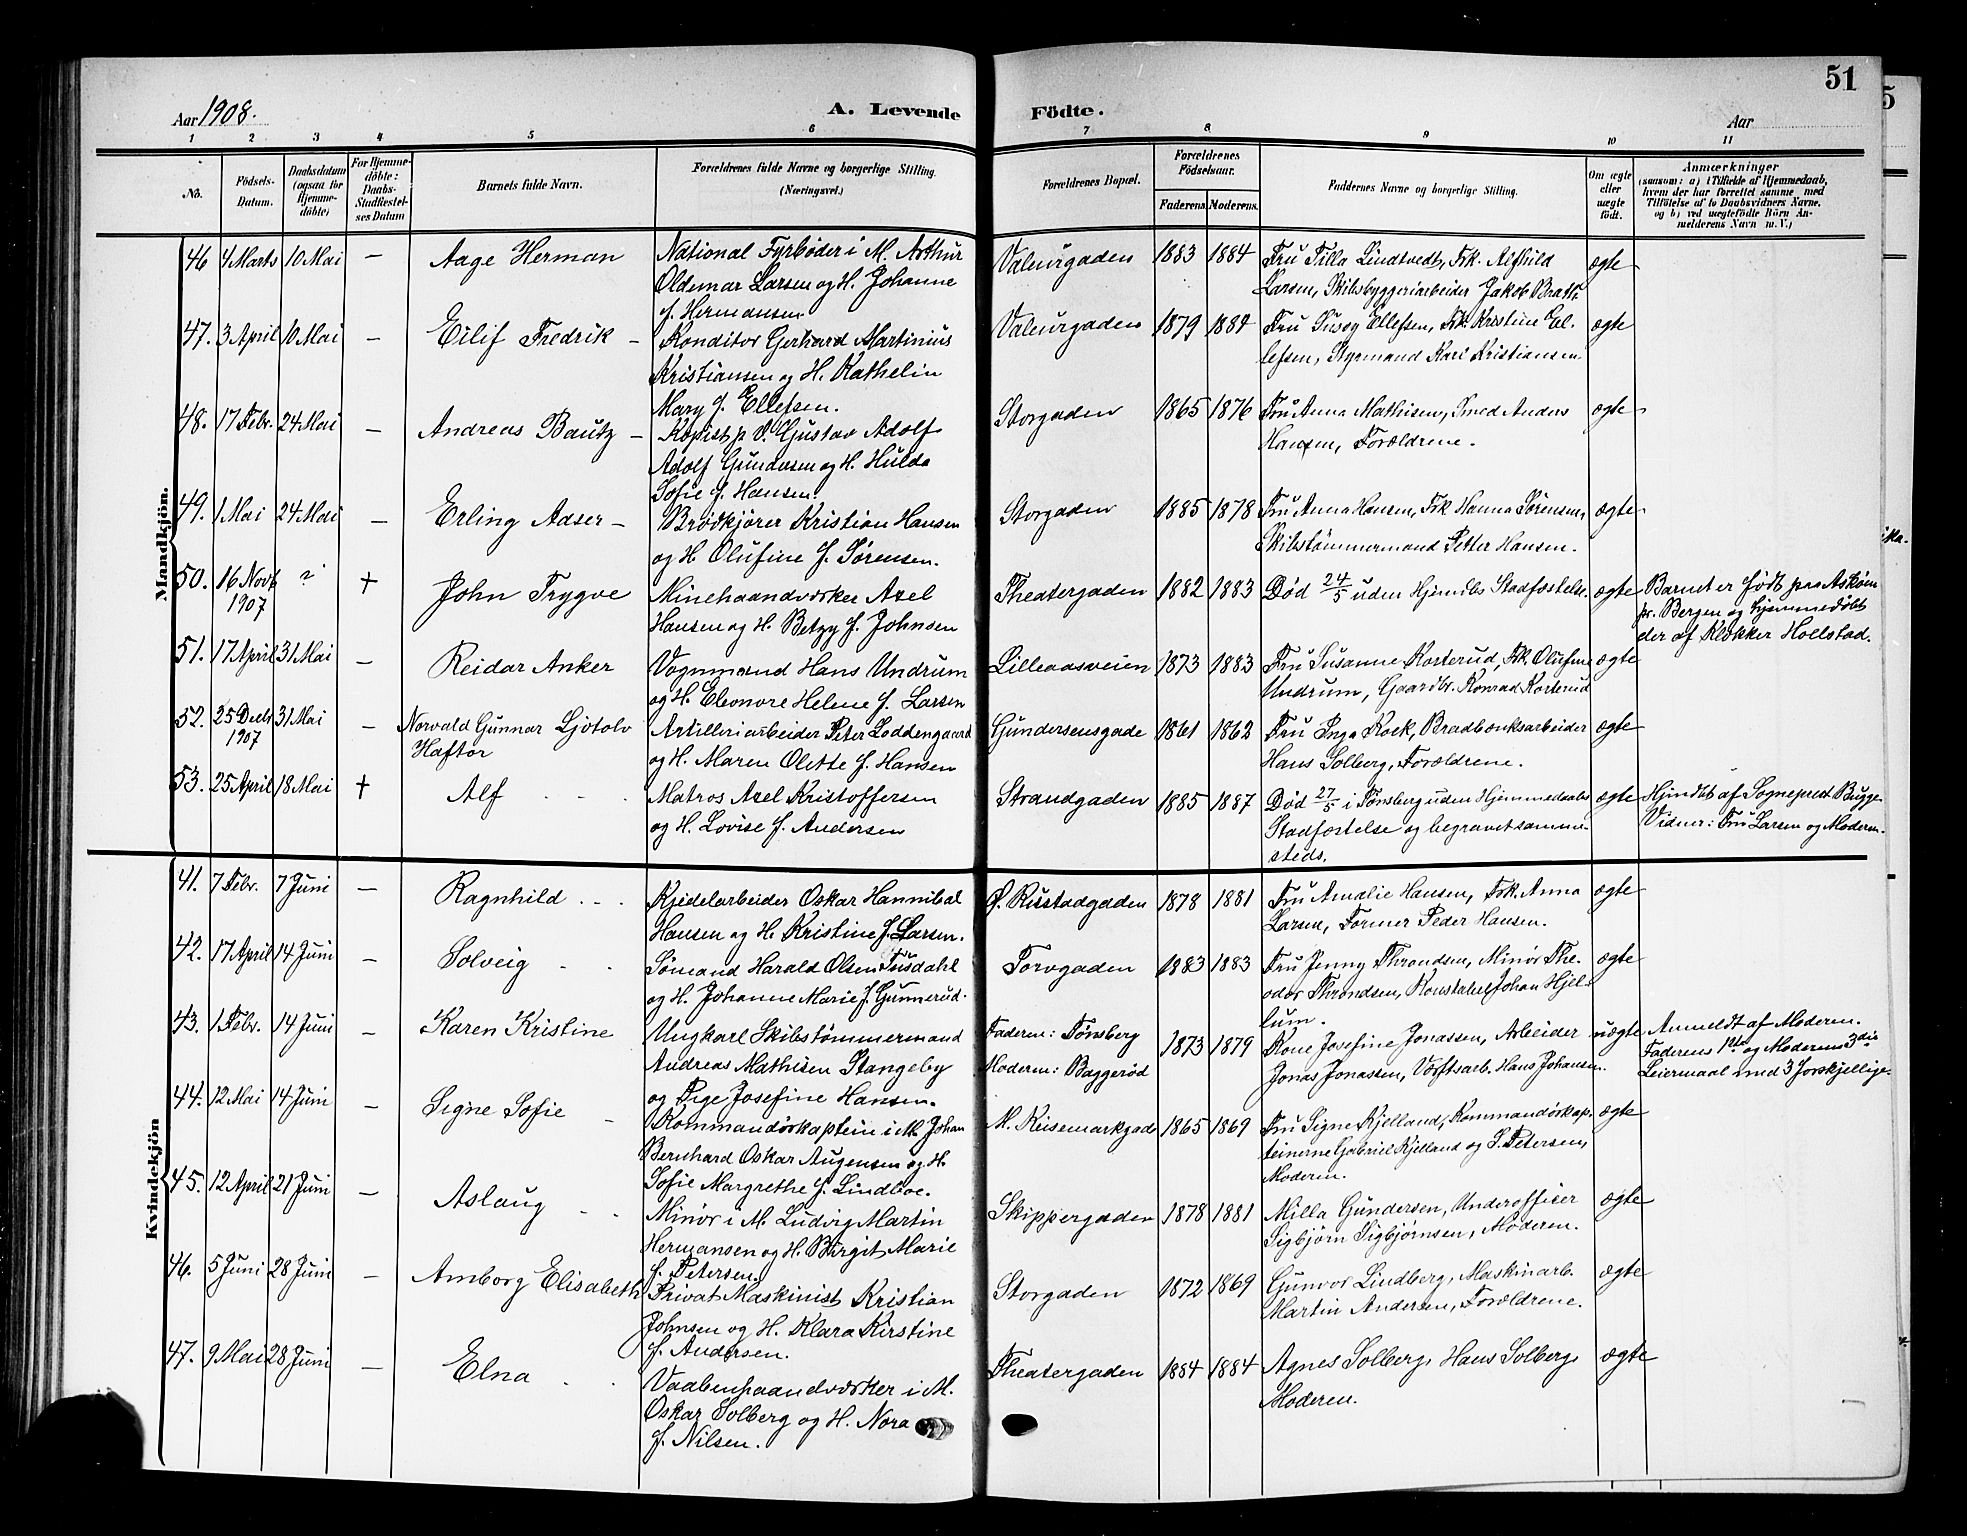 51
Aar 1908.
A. Levende Födte.
Aar
1 2 3 4 5 6 7 8 9 10 11
No.
Födsels-
Datum.
Daabsdatum
(ogsaa for
Hjemme-
döbte)
For Hjemme-
döbte:
Daabs-
Stadfæstel-
ses Datum
Barnets fulde Navn.
Forældrenes fulde Navne og borgerlige Stilling.
(Næringsvei.)
Forældrenes Bopæl.
Forældrenes
Födselsaar.
Faderens. Moderens.
Faddernes Navne og borgerlige Stilling.
Om ægte
eller
uægte
født.
Anmærkninger
(saasom: a) i Tilfælde af Hjemmedaab,
hvem der har forrettet samme med
Tilföielse af to Daabsvidners Navne,
og b) ved uægtefödte Börn An-
melderens Navn m. V.)
Mandkjön.
46 4 Marts 10 Mai — Aage Herman
National Fyrbøder i M. Arthur
Oldemar Larsen og H. Johanne
f. Hermansen
Valeurgaden 1883 1884
Fru Tilla Lindtvedt, Frk. Alfhild
Larsen, Skibsbyggeriarbeider Jakob Bratt
ægte
47. 3 April 10 Mai — Eilif Fredrik —
Konditor Gerhard Martinius
Kristiansen og H. Kathelin
Mary f. Ellefsen.
Valeurgaden 1879 1884
Fru Susog Ellefsen, Frk. Kristine El-
lefsen, Styrmand Karl Kristiansen
ægte
48. 17 Febr. 24 Mai — Andreas Bautz —
Kopist p. V. Gustav Adolf
Adolf Gundersen og H. Hulda
Sofie f. Hansen.
Storgaden 1865 1876
Fru Anna Mathisen, Smed Anders
Hansen, Forældrene.
ægte
49. 1 Mai 24 Mai — Erling Adser —
Brødkjører Kristian Hansen
og H. Olufine f. Sørensen.
Storgaden 1885 1878
Fru Anna Hansen, Frk Hanna Sørensen,
Skibstømmermand Petter Hansen.
ægte
50. 16 Novb 1907 ? + John Trygve
Minehaandværker Axel
Hansen og H. Betzy f. Johnsen
Theatergaden 1882 1883
Død 24/5 uden Hjemdbs Stadfæstelse.
ægte
Barnet er født paa Askøen
pr. Bergen og hjemmedøbt
der af Klokker Hollstad.
51. 17 April 31 Mai — Reidar Anker
Vognmand Hans Undrum
og H. Eleonore Helene f. Larsen
Lilleaasveien 1873 1883
Fru Susanne Korterud, Frk. Olufine
Undrum, Gaardbr. Konrad Korterud
ægte
52. 25 Decbr 1907 31 Mai — Norvald Gunnar Ljotolv
Haftor
Artilleriarbeider Peter Loddengaard
og H. Maren Olette f. Hansen
Gundersensgade 1861 1862
Fru Inga Kock, Bradbænksarbeider
Hans Solberg, Forældrene.
ægte
53. 25 April 18 Mai + Alf
Matros Axel Kristoffersen
og H. Lovise f. Andersen
Strandgaden 1885 1887
Død 27/5 i Tønsberg uden Hjemmedaabs
Stadfæstelse og begravet samme-
steds.
ægte
Hjmdbt af Sogneprest Bugge.
Vidner: Fru Larsen og Moderen.
Kvindekjön
41. 7 Febr. 7 Juni — Ragnhild
Kjedelarbeider Oskar Hannibal
Hansen og H. Kristine f. Larsen.
Ø. Ristadgaden 1878 1881
Fru Amalie Hansen, Frk. Anna
Larsen, Former Peder Hansen.
ægte
42. 17 April 14 Juni — Solveig
Sømand Harald Olsen Fusdahl
og H. Johanne Marie f. Gunnerud.
Torvgaden 1883 1883
Fru Jenny Throndsen, Minør The-
odor Throndsen, Konstabel Johan Hjel-
lum.
ægte
43. 1 Febr. 14 Juni — Karen Kristine
Ungkarl Skibstømmermand
Andreas Mathisen Stangeby
og Pige Josefine Hansen.
Faderen: Tønsberg
Moderen: Baggerød
1873 1879
Kone Josefine Jonassen, Arbeider
Jonas Jonassen, Værftsarb. Hans Johansen.
uægte
Anmeldt af Moderen.
Faderens 1ste og Moderens 3die
Leiermaal med 3 forskjellige.
44. 12 Mai 14 Juni — Signe Sofie —
Kommandørkaptein i M. Johan
Bernhard Oskar Augensen og H.
Sofie Margrethe f. Lindboe.
N. Keisemarkgade 1865 1869
Fru Signe Kjelland, Kommandørkap-
teinerne Gabriel Kjelland og S. Petersen,
Moderen.
ægte
45. 12 April 21 Juni — Aslaug
Minør i M. Ludvig Martin
Hermansen og H. Birgit Marie
f. Petersen.
Skippergaden 1878 1881
Milla Gundersen, Underofficer
Sigbjørn Sigbjørnsen, Moderen.
ægte
46. 5 Juni 28 Juni — Amborg Elisabeth
Privat Maskinist Kristian
Johnsen og H. Klara Kirstine
f. Andersen.
Storgaden 1872 1869
Gunvor Lindberg, Maskinarb.
Martin Andersen, Forældrene.
ægte
47. 9 Mai 28 Juni — Elna
Vaabenhaandværker i M.
Oskar Solberg og H. Nora
f. Nilsen.
Theatergaden 1884 1884
Agnes Solberg, Hans Solberg,
Moderen.
ægte